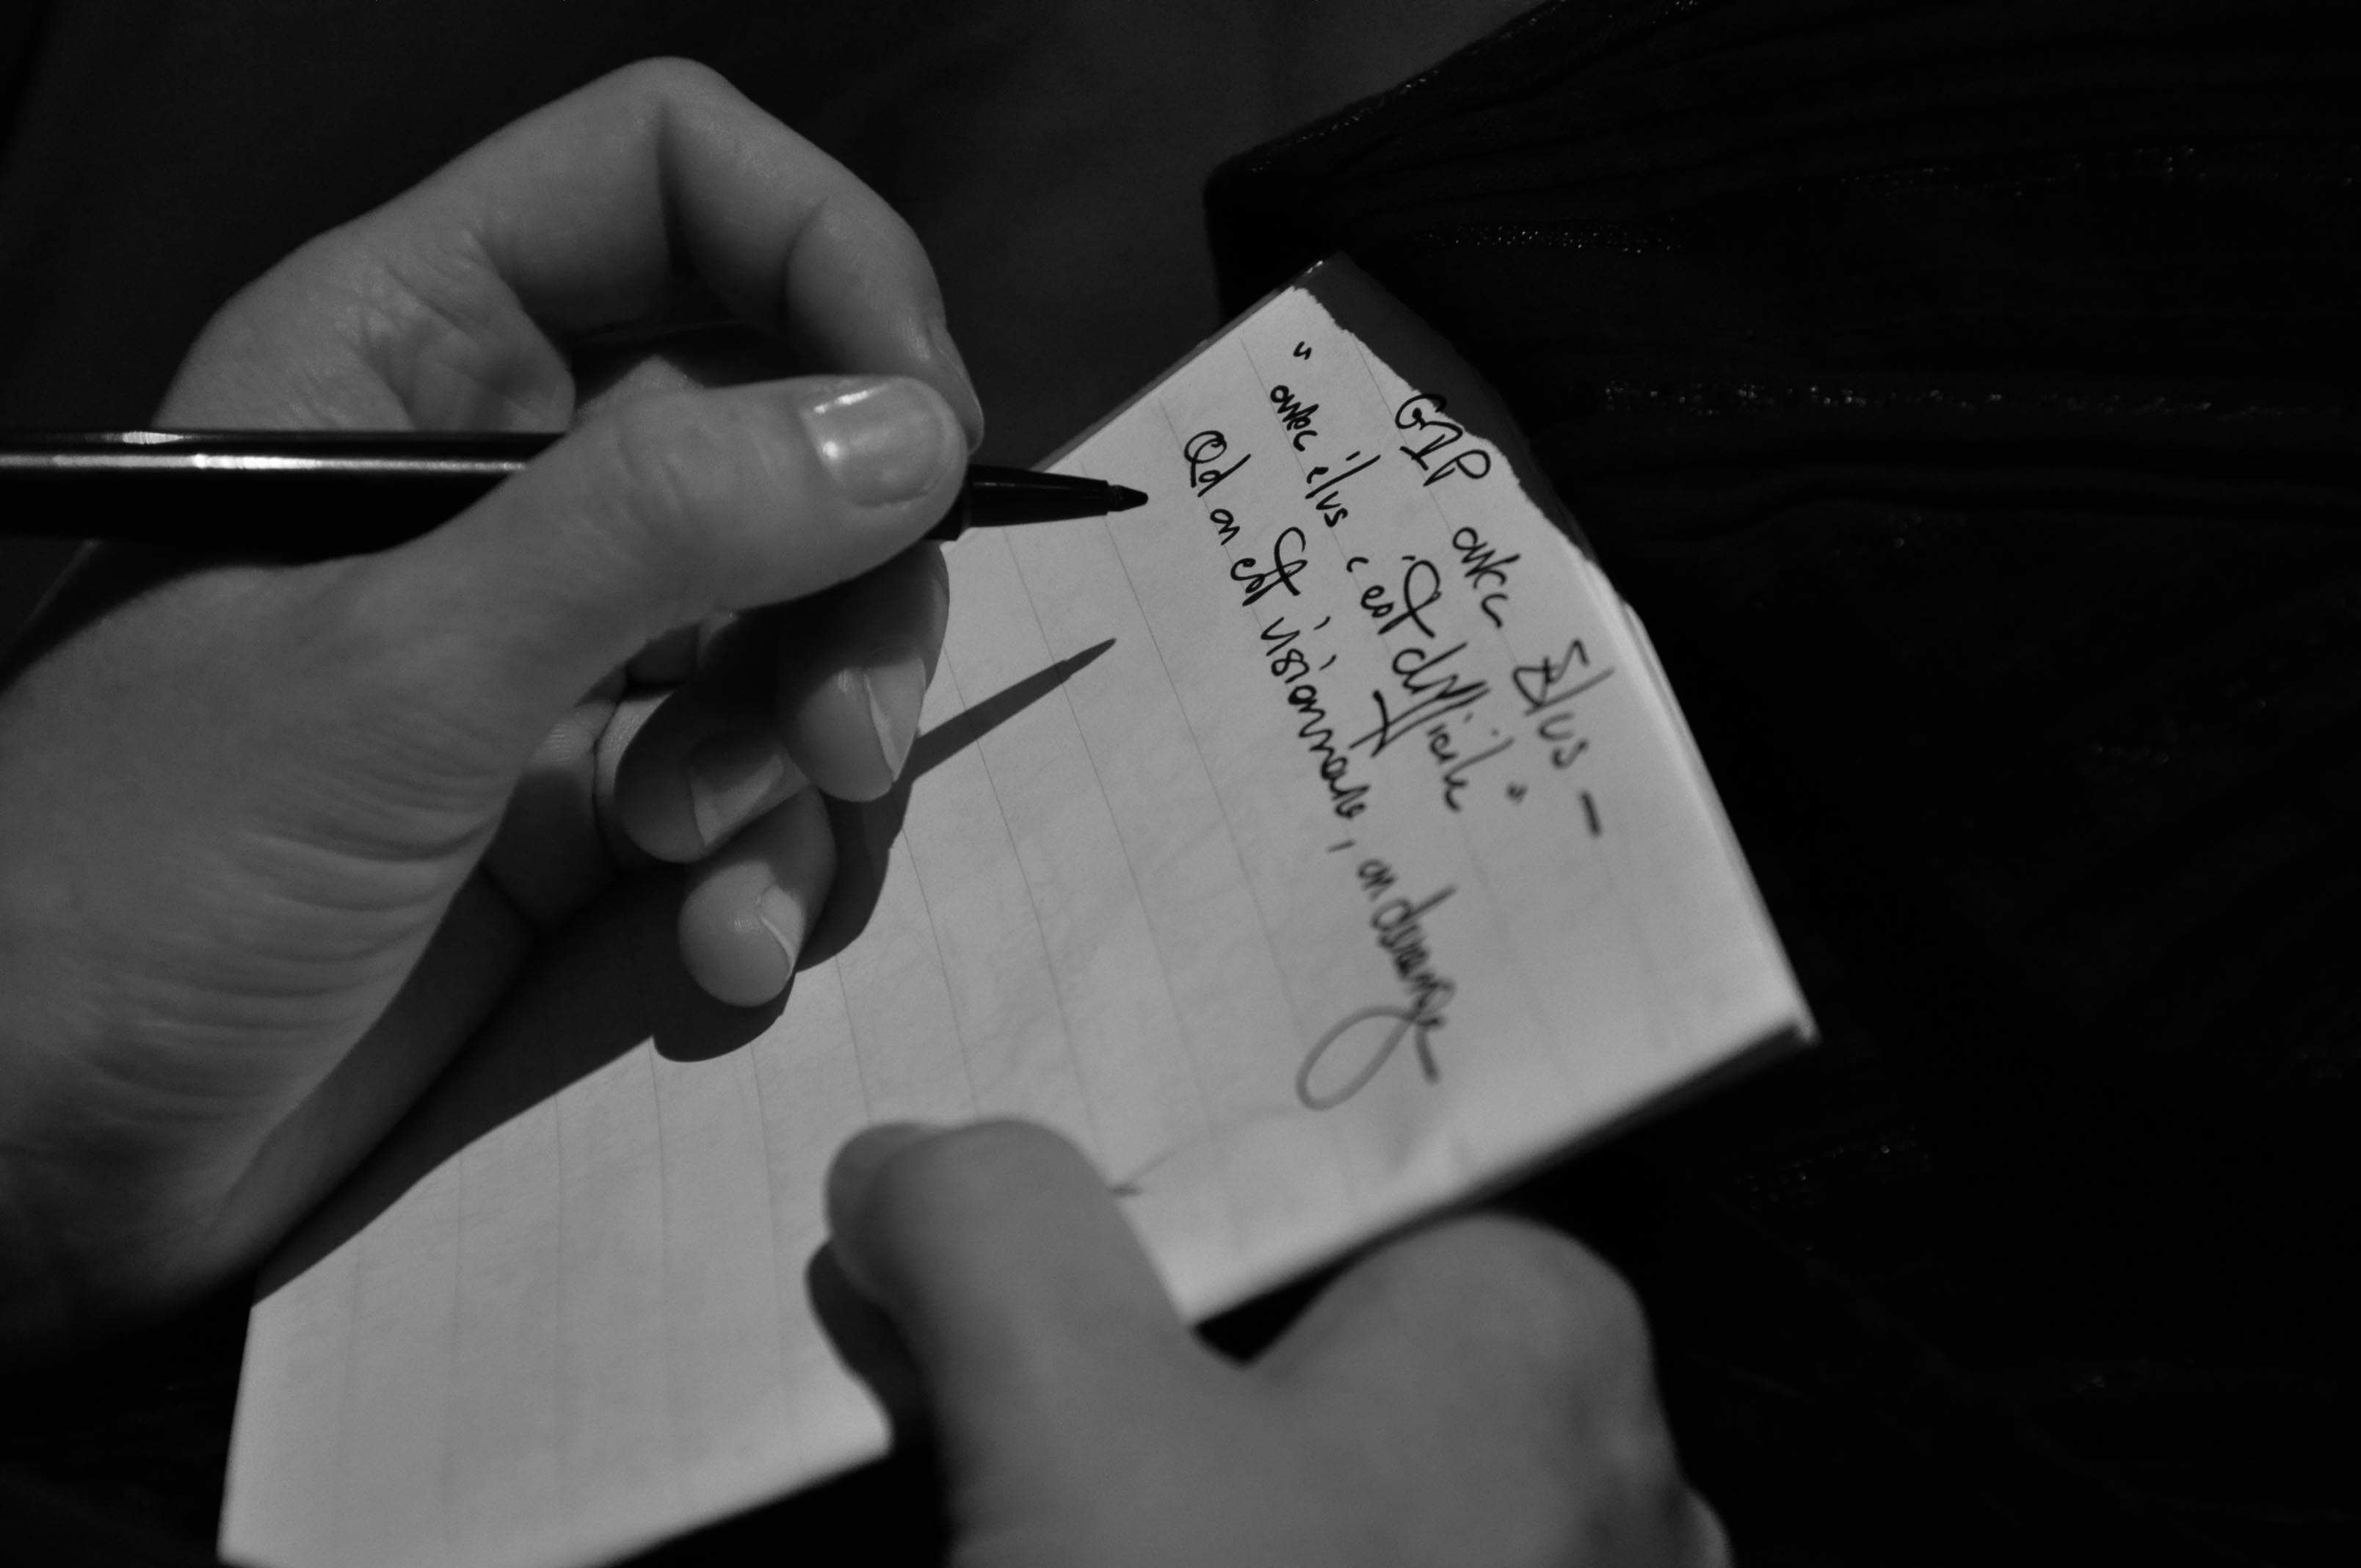 GIP avec Elus -
"avec élus c'est difficile"
Qd on est visionnaire, on dérange